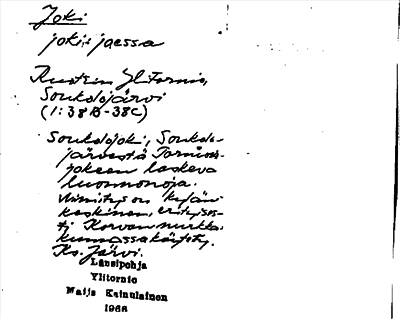 Joki
joki: joessa
Ruotsin Ylitornio,
Soukolojärvi
(1:38B-38C)
Soukolojoki, Soukolo-
järvestä Tornion-
jokeen laskeva
luonnonoja.
Nimitys on kylän
keskinen, erityises-
ti Korvan nurkka-
kunnassa käytetty.
Ks. Järvi.
Länsipohja
Ylitornio
Maija Kainulainen
1966